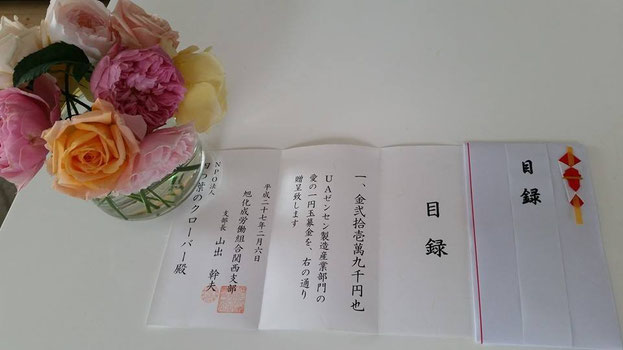 目録
目録
一、金弐拾壱萬九千円也
UAゼンセン製造産業部門の
愛の一円玉募金を、右の通り
贈呈致します
平成二十七年二月六日
旭化成労働組合関西支部
支部長 山出 幹夫
NPO法人
つ葉のクローバー殿